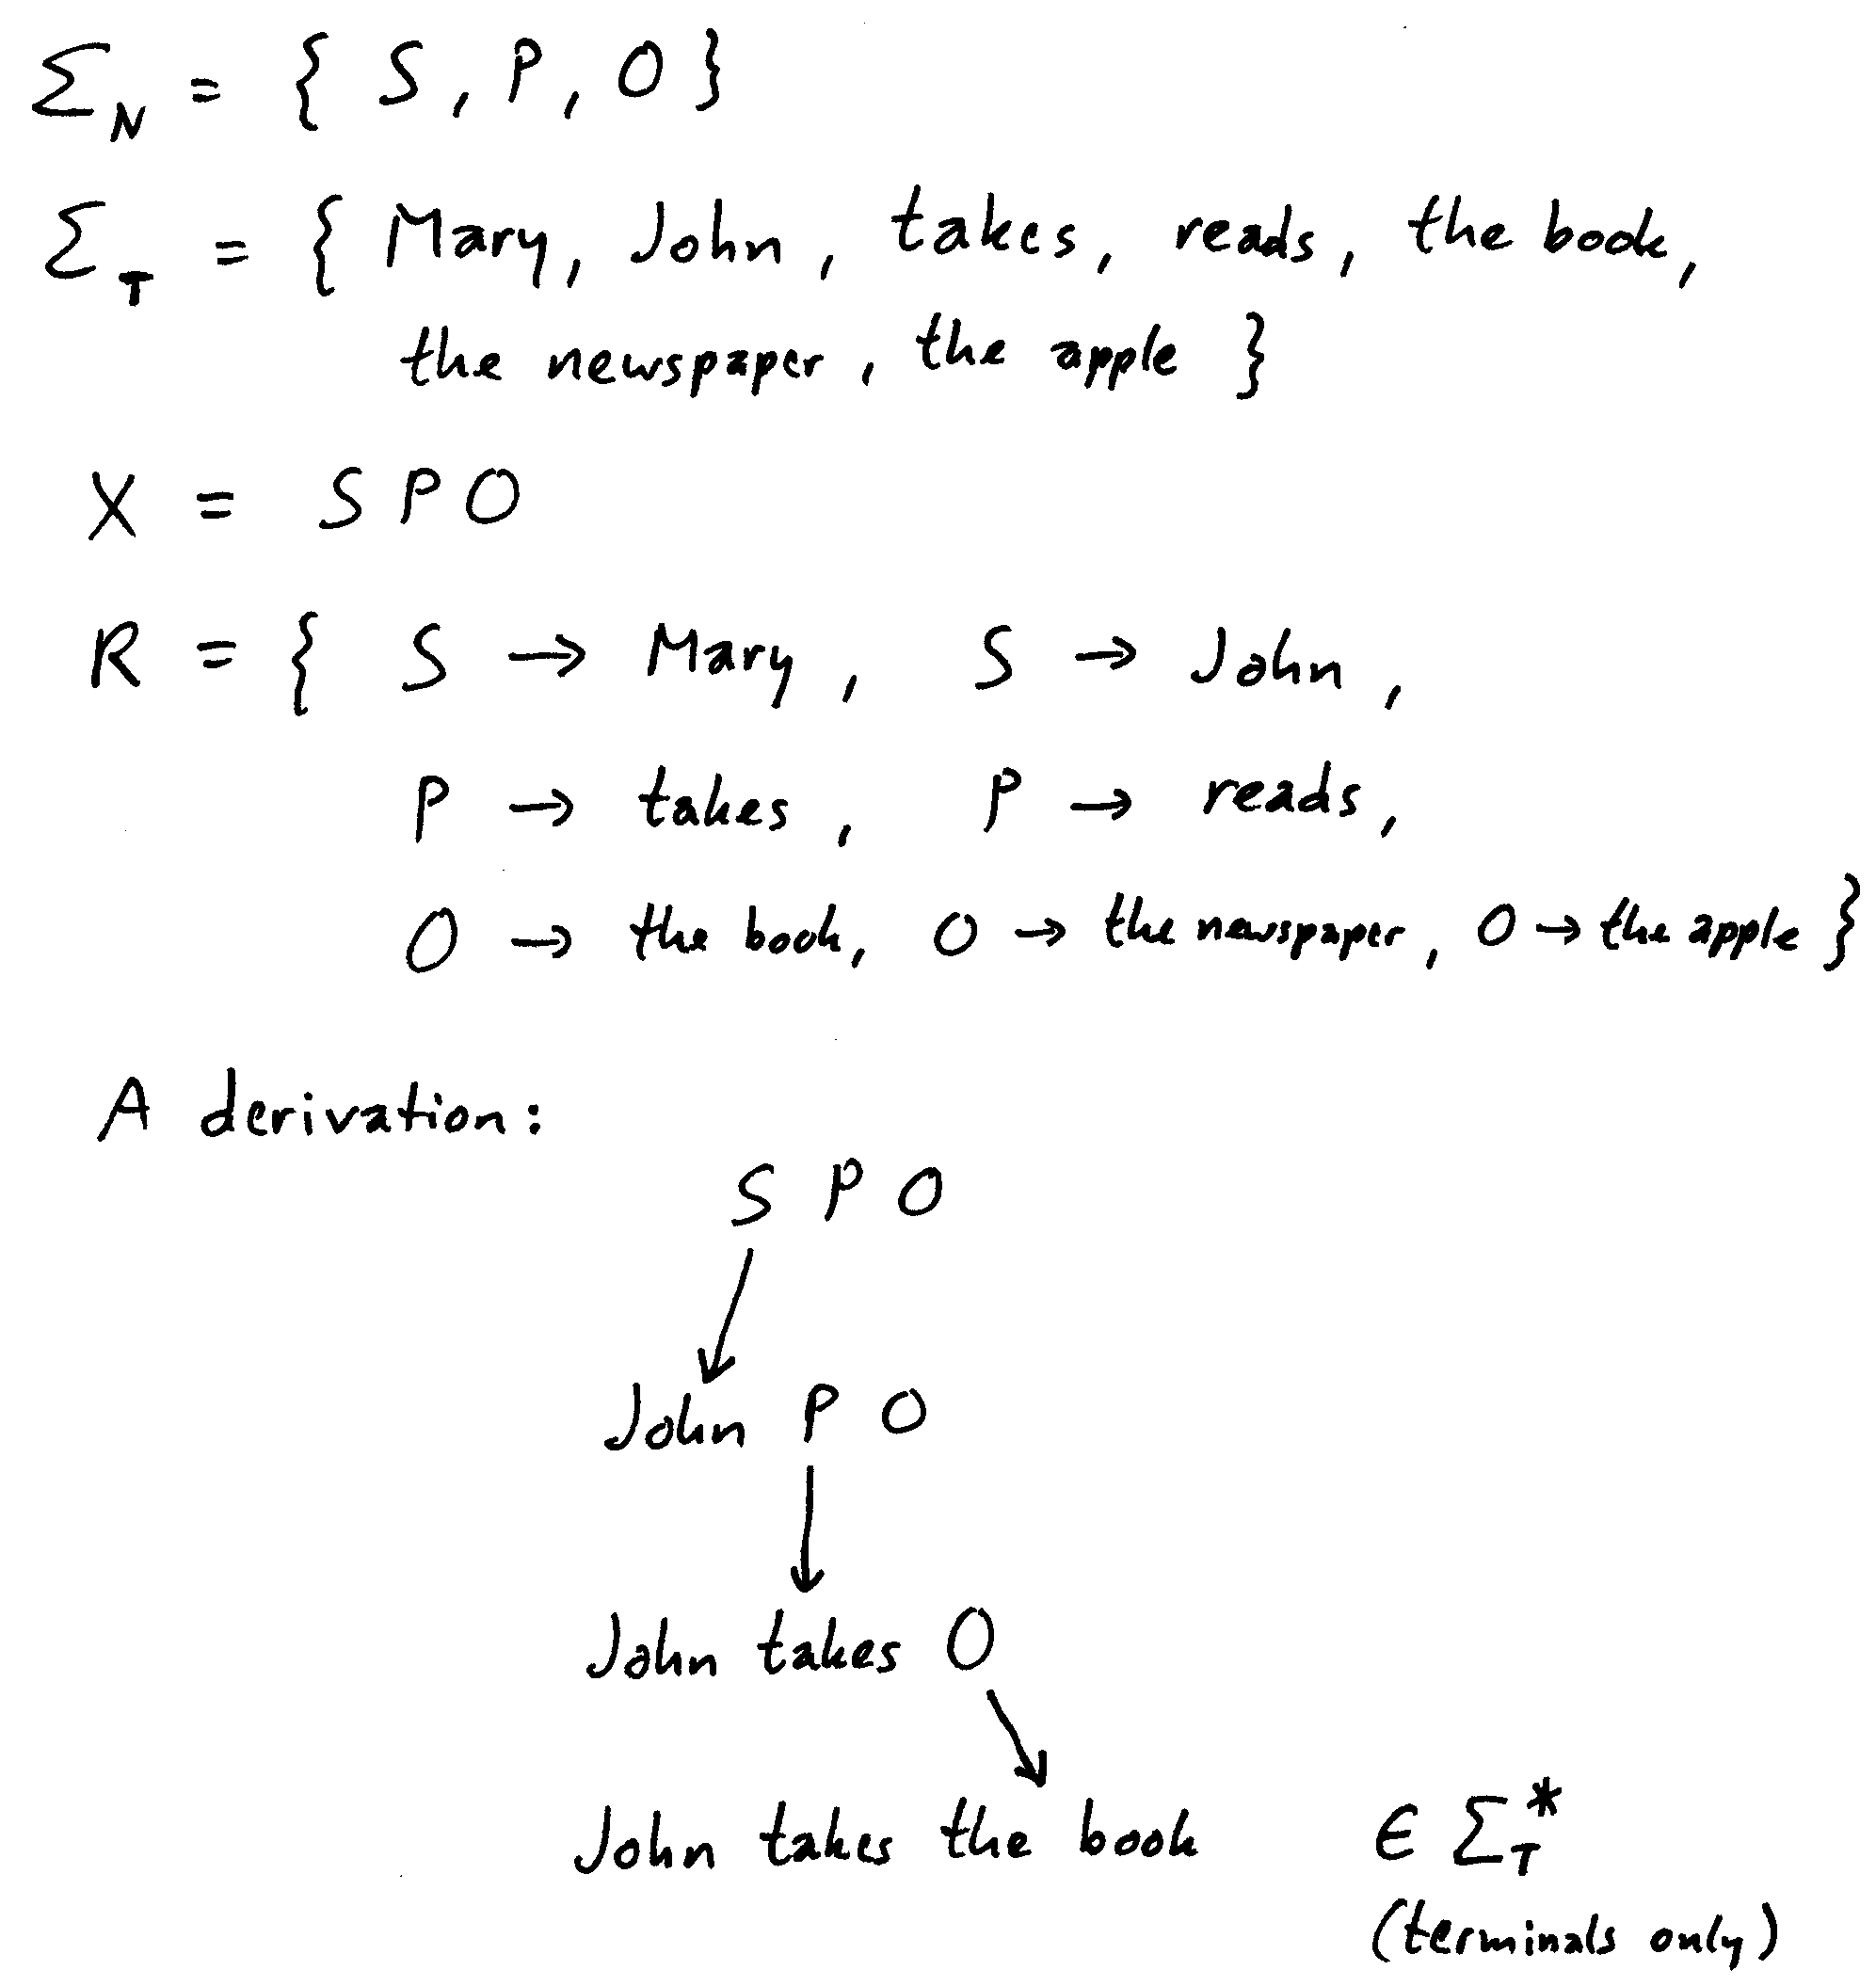 Σ_N = { S, P, O }
Σ_T = { Mary, John, takes, reads, the book,
the newspaper, the apple }
X = S P O
R = { S → Mary, S → John,
P → takes, P → reads,
O → the book, O → the newspaper, O → the apple }
A derivation:
S P O
John P O
John takes O
John takes the book ∈ Σ_T^*
(terminals only)